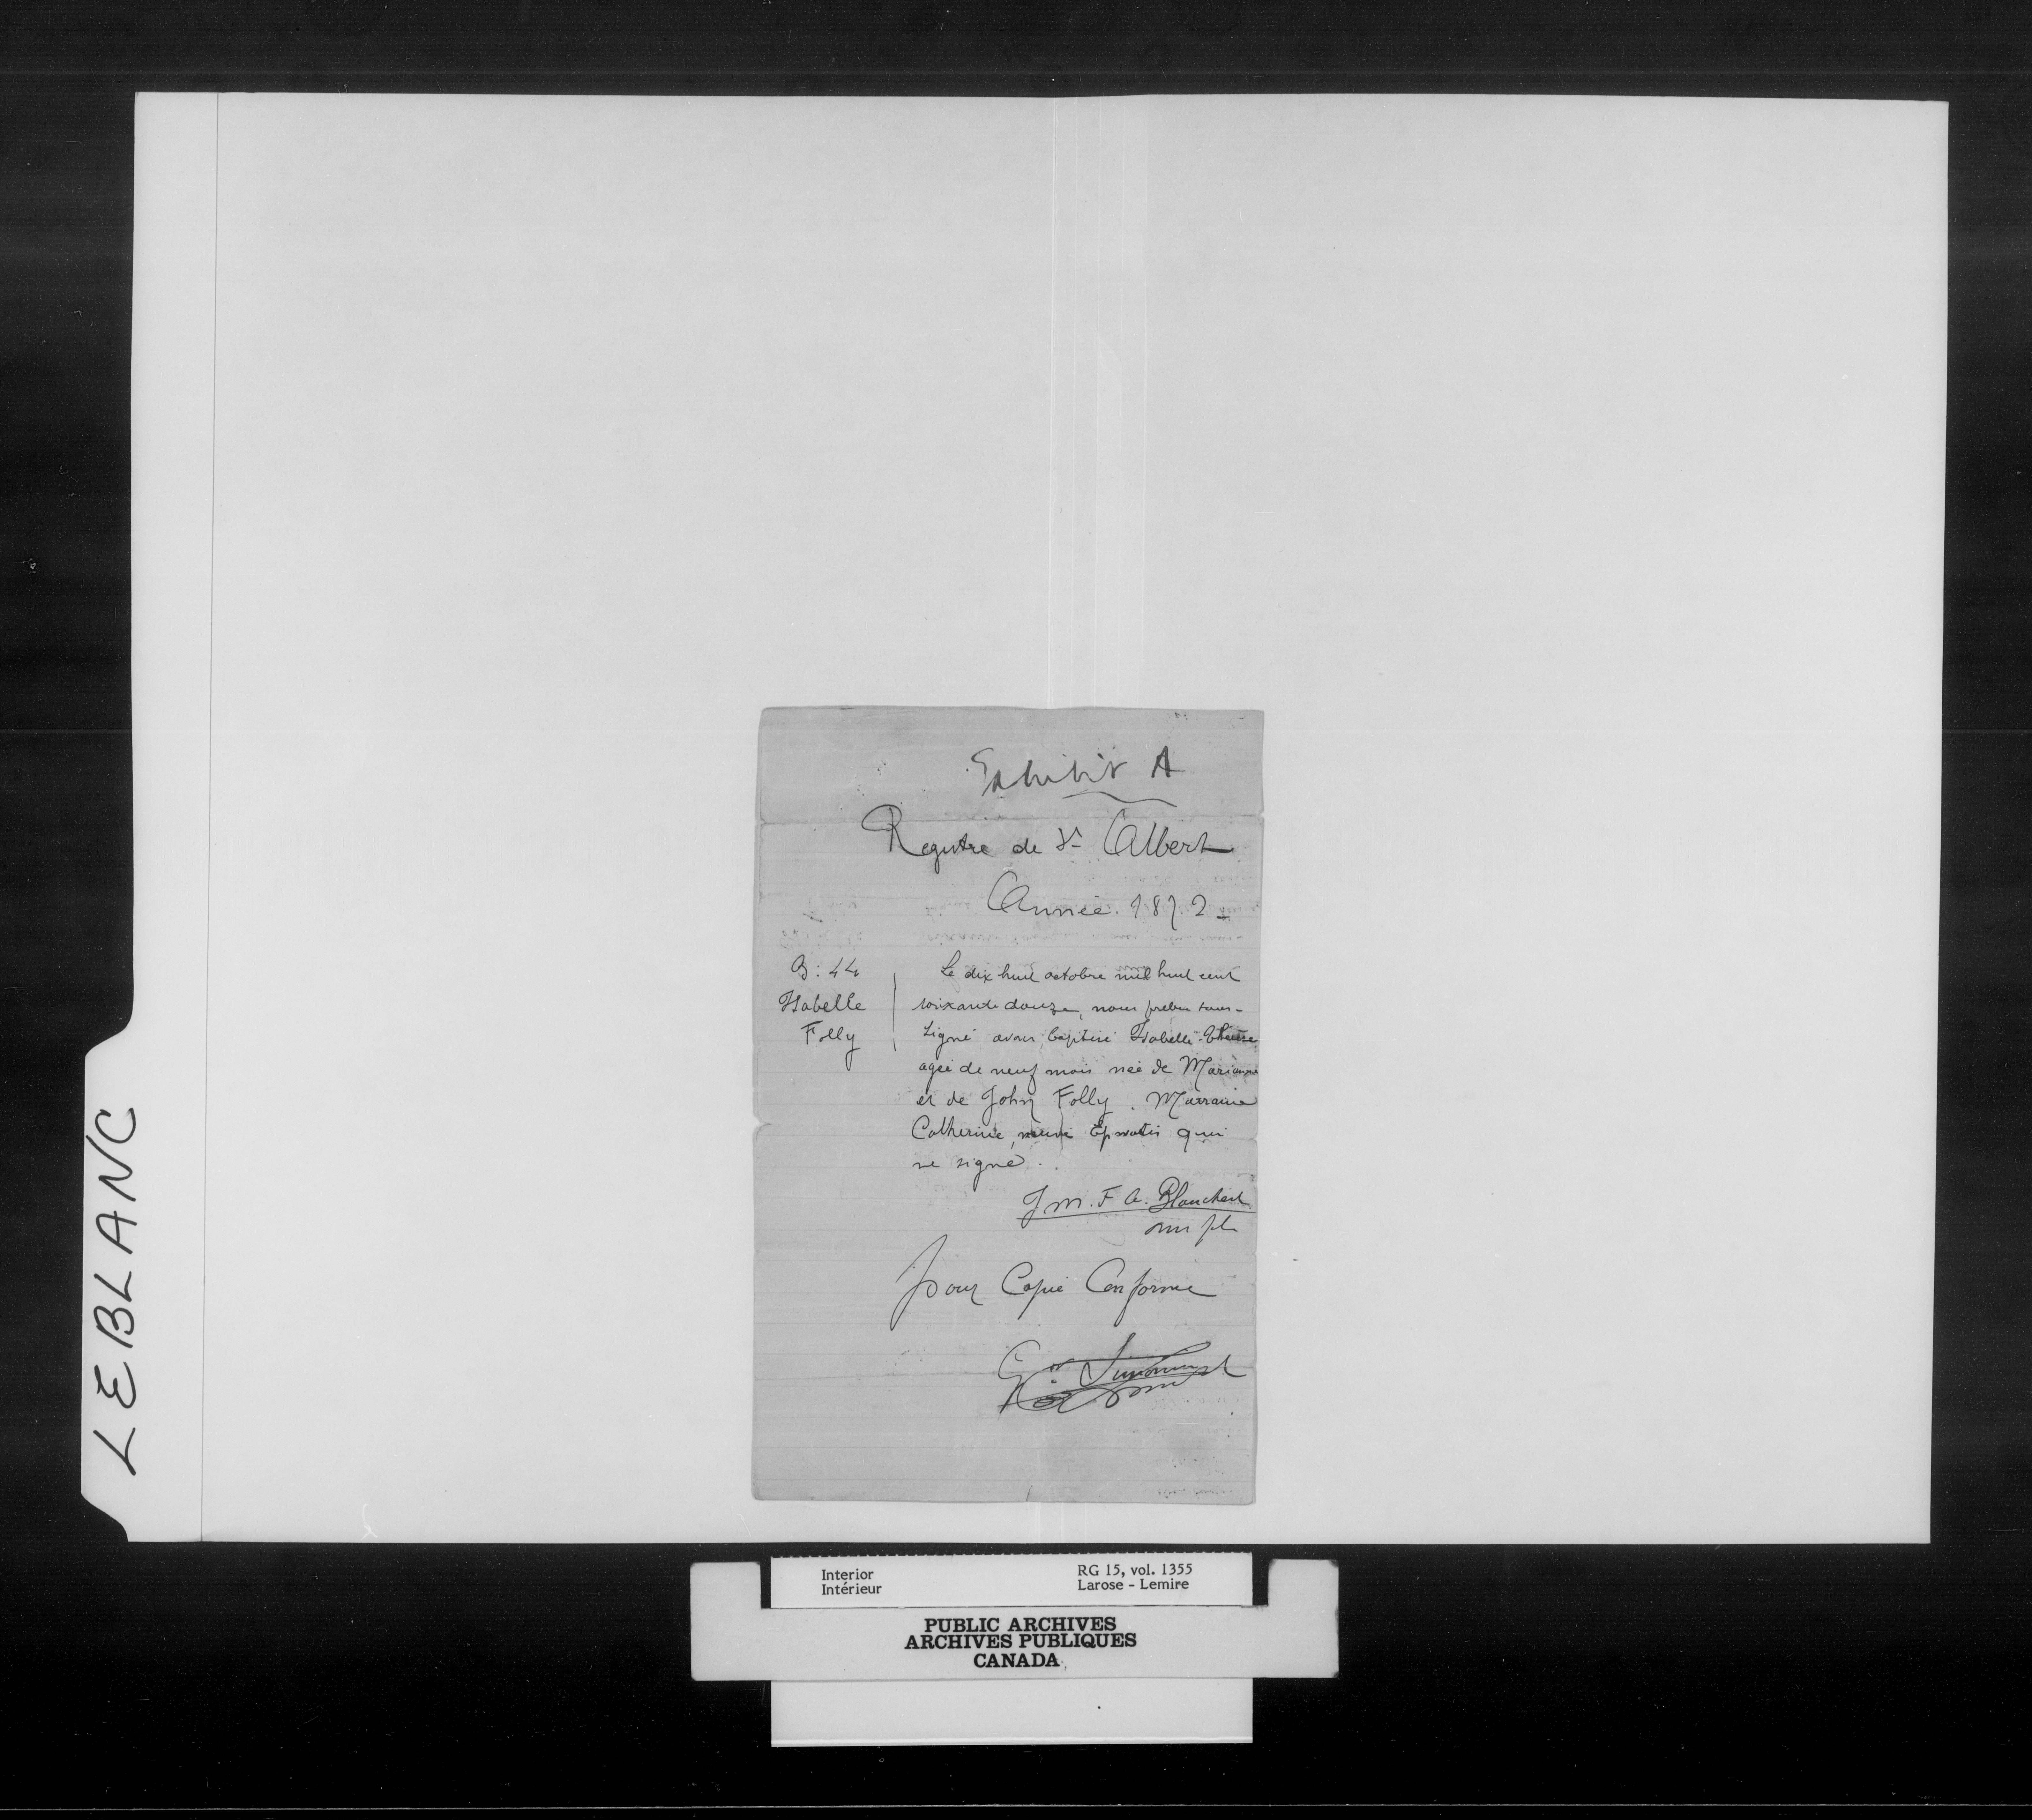 Exhibit A
Registre de St Albert
Année. 1872 -
B: 44
Isabelle
Folly
Le dix huit octobre mil huit cent
soixante douze, nous prêtre sous-
signé avons baptisé Isabelle-Thérèse
agée de neuf mois née de Marianne
et de John Folly. Marraine
Catherine, qui
ne signe.
J M. F A. Blanchet
omi ptr
Pour Copie Conforme
LEBLANC
Interior
Intérieur
RG 15, vol. 1355
Larose - Lemire
PUBLIC ARCHIVES
ARCHIVES PUBLIQUES
CANADA